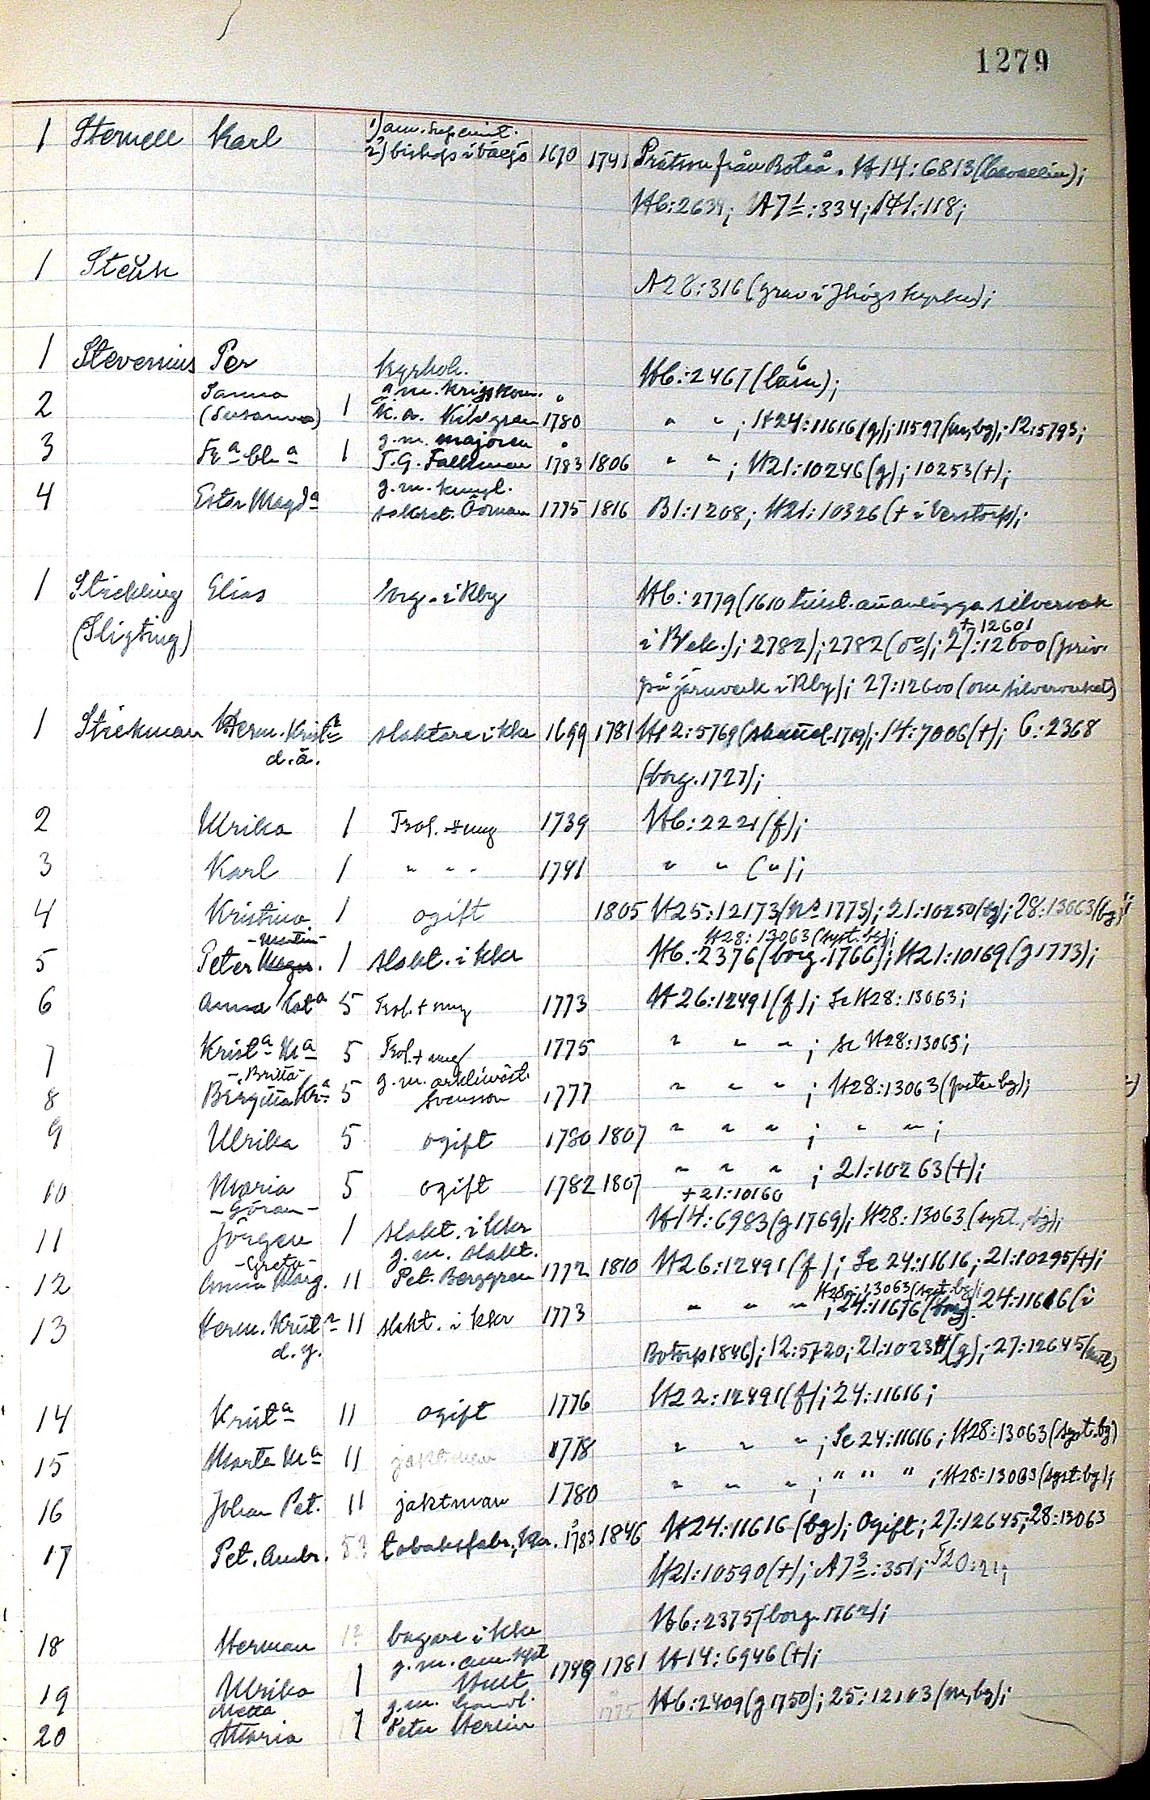 1279
1 Sternell Karl 1) am. Sup.
2) biskop i 1670 1741 Prästson från Boteå. H14:6813
H6:2639; A7 1:334; 141:118;
1 Steuk
A28:316 (grav i Jhögs kyrka);
1 Stevenius Per kyrkoh. H6:2467
2 Sanna (Susanna) 1 g.m. krigskom. K.A. Kildgren 1780 " " ; H24:11616(g); 11597(m,bg); 12:5793;
3 Fra Cha 1 g.m. majoren T.G. Falkman 1783 1806 " " ; H21:10246(g); 10253(+);
4 Ester Magda g.m. kungl. sekret. Öoman 1775 1816 B1:1208; H21:10326(+ i
1 Strickling Elias borg. i Rby H6:2779(1610 att anlägga silververk
(Sligting) i Blek.); 2782); 2782(do); 27:12600(priv.
+12601
på järnverk i Rby); 27:12600(om silververket)
1 Strickman Herm. Krista slaktare i kkr 1699 1781 H2:5769( 14:7006(+); 6:2368
d.ä.
(borg. 1727);
2 Ulrika 1 Trol. + ung 1739 H6:2221(f);
3 Karl 1 " " " 1741 " " (");
4 Kristina 1 ogift 1805 H25:12173(No 1773); 21:10250(bg); 28:13063(bg)
- Martin - H28:13063(syst. bg);
5 Peter 1 slakt. i kkr H6:2376(borg. 1766); H21:10169(g 1773);
6 Anna Kata 5 Trol. + ung 1773 H26:12491(f); Se H28:13063;
7 Krista Ma 5 Trol. + ung 1775 " " " ; se H28:13063;
- Britta -
8 Birgitta Kra 5 g.m. arklimäst. Svensson 1777 " " " ; H28:13063(foster bg);
9 Ulrika 5 ogift 1780 1807 " " " ; " " ;
10 Maria 5 ogift 1782 1807 " " " ; 21:10263(+);
- Göran - +21:10160
11 Jörgen 1 slakt. i kkr H14:6983(g 1769); H28:13063(syst. bg);
- Greta -
12 Anna Marg. 11 g.m. slakt. Pet. Berggren 1772 1810 H26:12491(f); Se 24:11616; 21:10295(+);
H28:13063(syst. bg);
13 Herm. Krist. 11 slakt. i kkr 1773 " " " ; 24:11616(borg). 24:11616(i
d.y. Botorp 1846); 12:5720; 21:10234(g); 27:12645
14 Krista 11 ogift 1776 H22:12491(f); 24:11616;
15 Marta Ma 11 jaktman 1778 " " " ; Se 24:11616; H28:13063(syst. bg)
16 Johan Pet. 11 jaktman 1780 " " " ; " " " ; H28:13063(syst. bg);
17 Pet. Andr. 5? tobaksfabr., kkr. 1783 1846 H24:11616(bg); Ogift; 27:12645; 28:13063
H21:10590(+); A7 3:351; T20:21;
18 Herman 1? bagare i kkr H6:2375(borg. 1762);
19 Ulrika 1 g.m. Hult 1749 1781 H14:6946(+);
Metta
20 Maria 1 g.m. handl. Peter Herlin 1775 H6:2409(g 1750); 25:12163(m, bg);